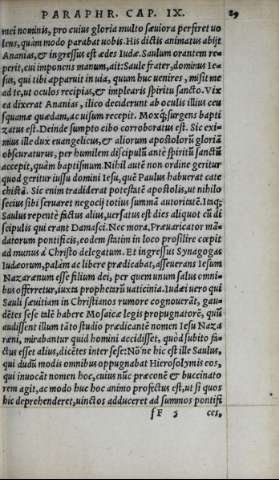 PARAPHR. CAP. IX. 89
mei nominis, pro cuius gloria multo sæuiora perferet uo
lens, quàm modo parabat uobis. His dictis animatus abijt
Ananias, & ingressus est ædes Iudæ. Saulum orantem re=
perit, cui imponens manum, ait: Saule frater, dominus Ie=
sus, qui tibi apparuit in uia, quum huc uenires, misit me
ad te, ut oculos recipias, & implearis spiritu sancto. Vix
ea dixerat Ananias, ilico deciderunt ab oculis illius ceu
squamæ quædam, ac uisum recepit. Moxq́; surgens bapti
zatus est. Deinde sumpto cibo corroboratus est. Sic exi=
mius ille dux euangelicus, & aliorum apostolorũ gloriã
obscuraturus, per humilem discipulũ antè spiritũ sanctũ
accepit, quàm baptismum. Nihil autẽ non ordine geritur
quod geritur iussu domini Iesu, quẽ Paulus habuerat cate
chistã. Sic enim tradiderat potestatẽ apostolis, ut nihilo
secius sibi seruaret negocij totius summã autoritatẽ. Itaq;
Saulus repentè factus alius, uersatus est dies aliquot cũ di
scipulis qui erant Damasci. Nec mora, Præuaricator man=
datorum pontificis, eodem statim in loco prosilire cœpit
ad munus à Christo delegatum. Et ingressus Synagogas
Iudæorum, palàm ac liberè prædicabat, asseuerans Iesum
Nazarænum esse filium dei, per quem unum salus omni=
bus offerretur, iuxta prophetarũ uaticinia. Iudæi uero qui
Sauli sæuitiam in Christianos rumore cognouerãt, gau=
dẽtes sese talẽ habere Mosaicæ legis propugnatorẽ, quũ
audissent illum tãto studio prædicantẽ nomen Iesu Naza
ræni, mirabantur quid homini accidisset, quòd subitò fa=
ctus esset alius, dicẽtes inter sese: Nõne hic est ille Saulus,
qui dudũ modis omnibus oppugnabat Hierosolymis eos,
qui inuocãt nomen hoc, cuius nũc præconẽ & buccinato
rem agit, ac modo huc hoc animo profectus est, ut si quos
hic deprehenderet, uinctos adduceret ad summos pontifi
fF 3 ces,